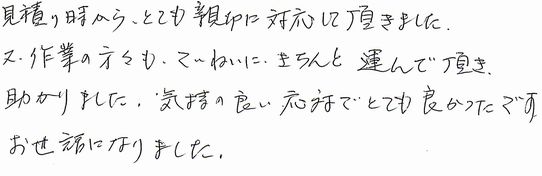 見積り時から、とても親切に対応して頂きました。
又、作業の方々も、ていねいに、きちんと運んで頂き、
助かりました。気持の良い応対でとても良かったです
お世話になりました。